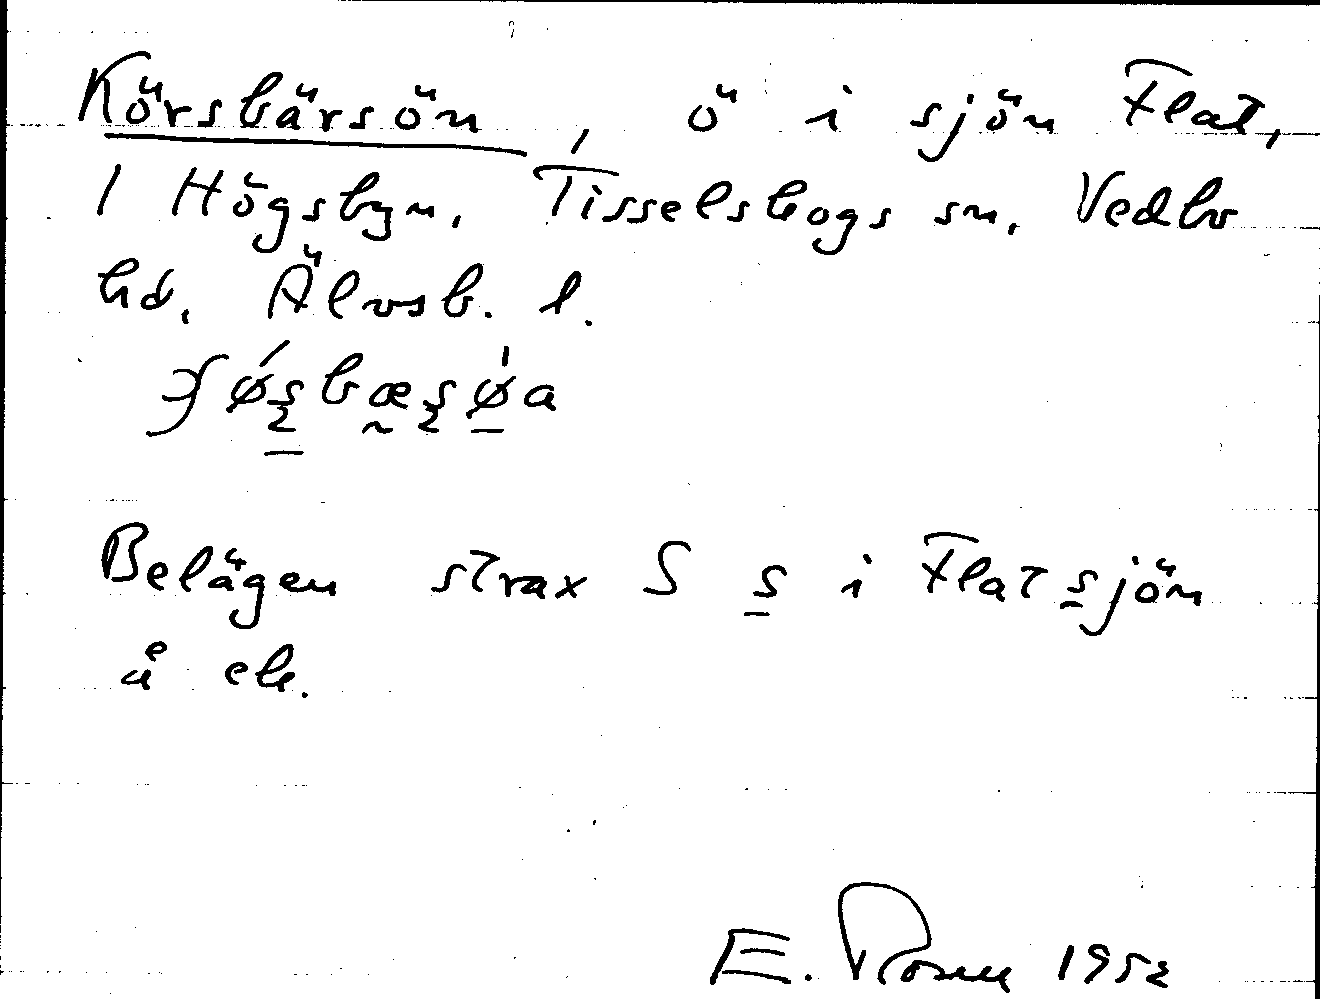 Körsbärsön, ö i sjön Flat,
1 Högsbyn, Tisselskogs sn, Vedbo
hd, Älvsb. l.
Belägen strax S s i Flatsjön
å ek.
E. Rosell 1952